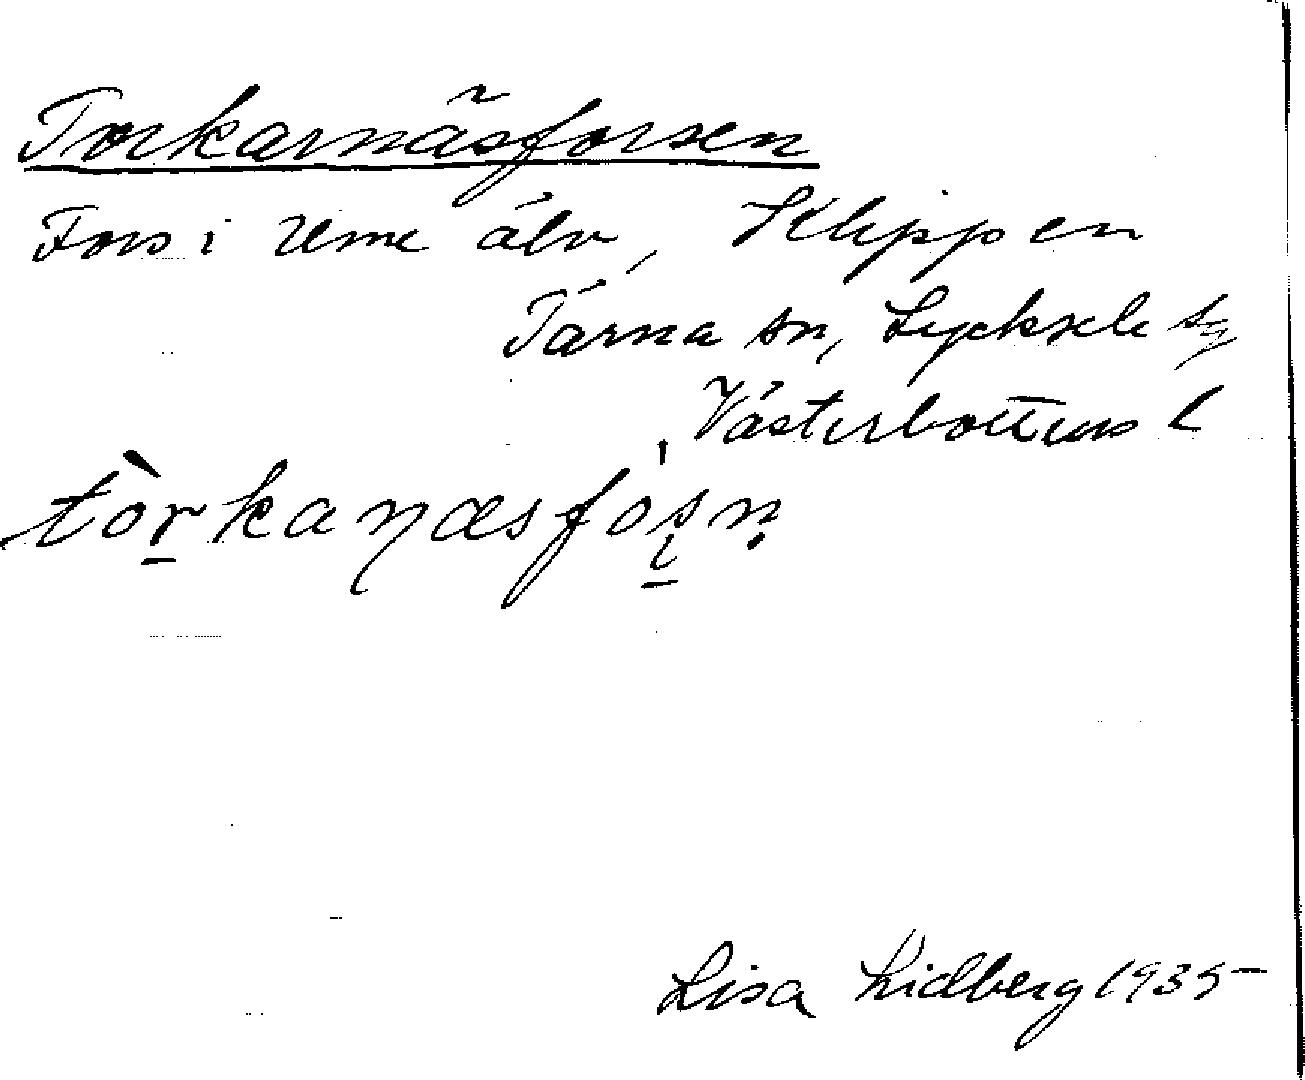 Torkarnäsforsen
Fors i Ume älv, Klippen
Tärna sn, Lycksele tg
Västerbottens l
tòrkaɳæsfòsn̥
Lisa Lidberg 1935